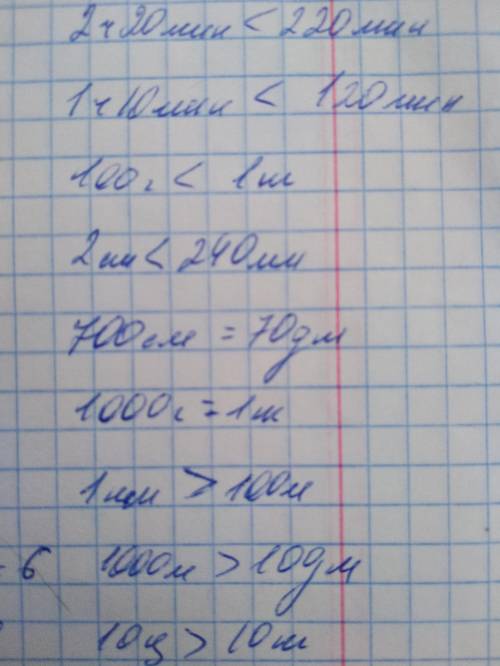 2ч20мин < 220мин
1ч10мин < 120мин
100г < 1т
2см < 240мм
700см = 70дм
1000г = 1т
> 100м
- 6 1000м > 10дм
10ц > 10т